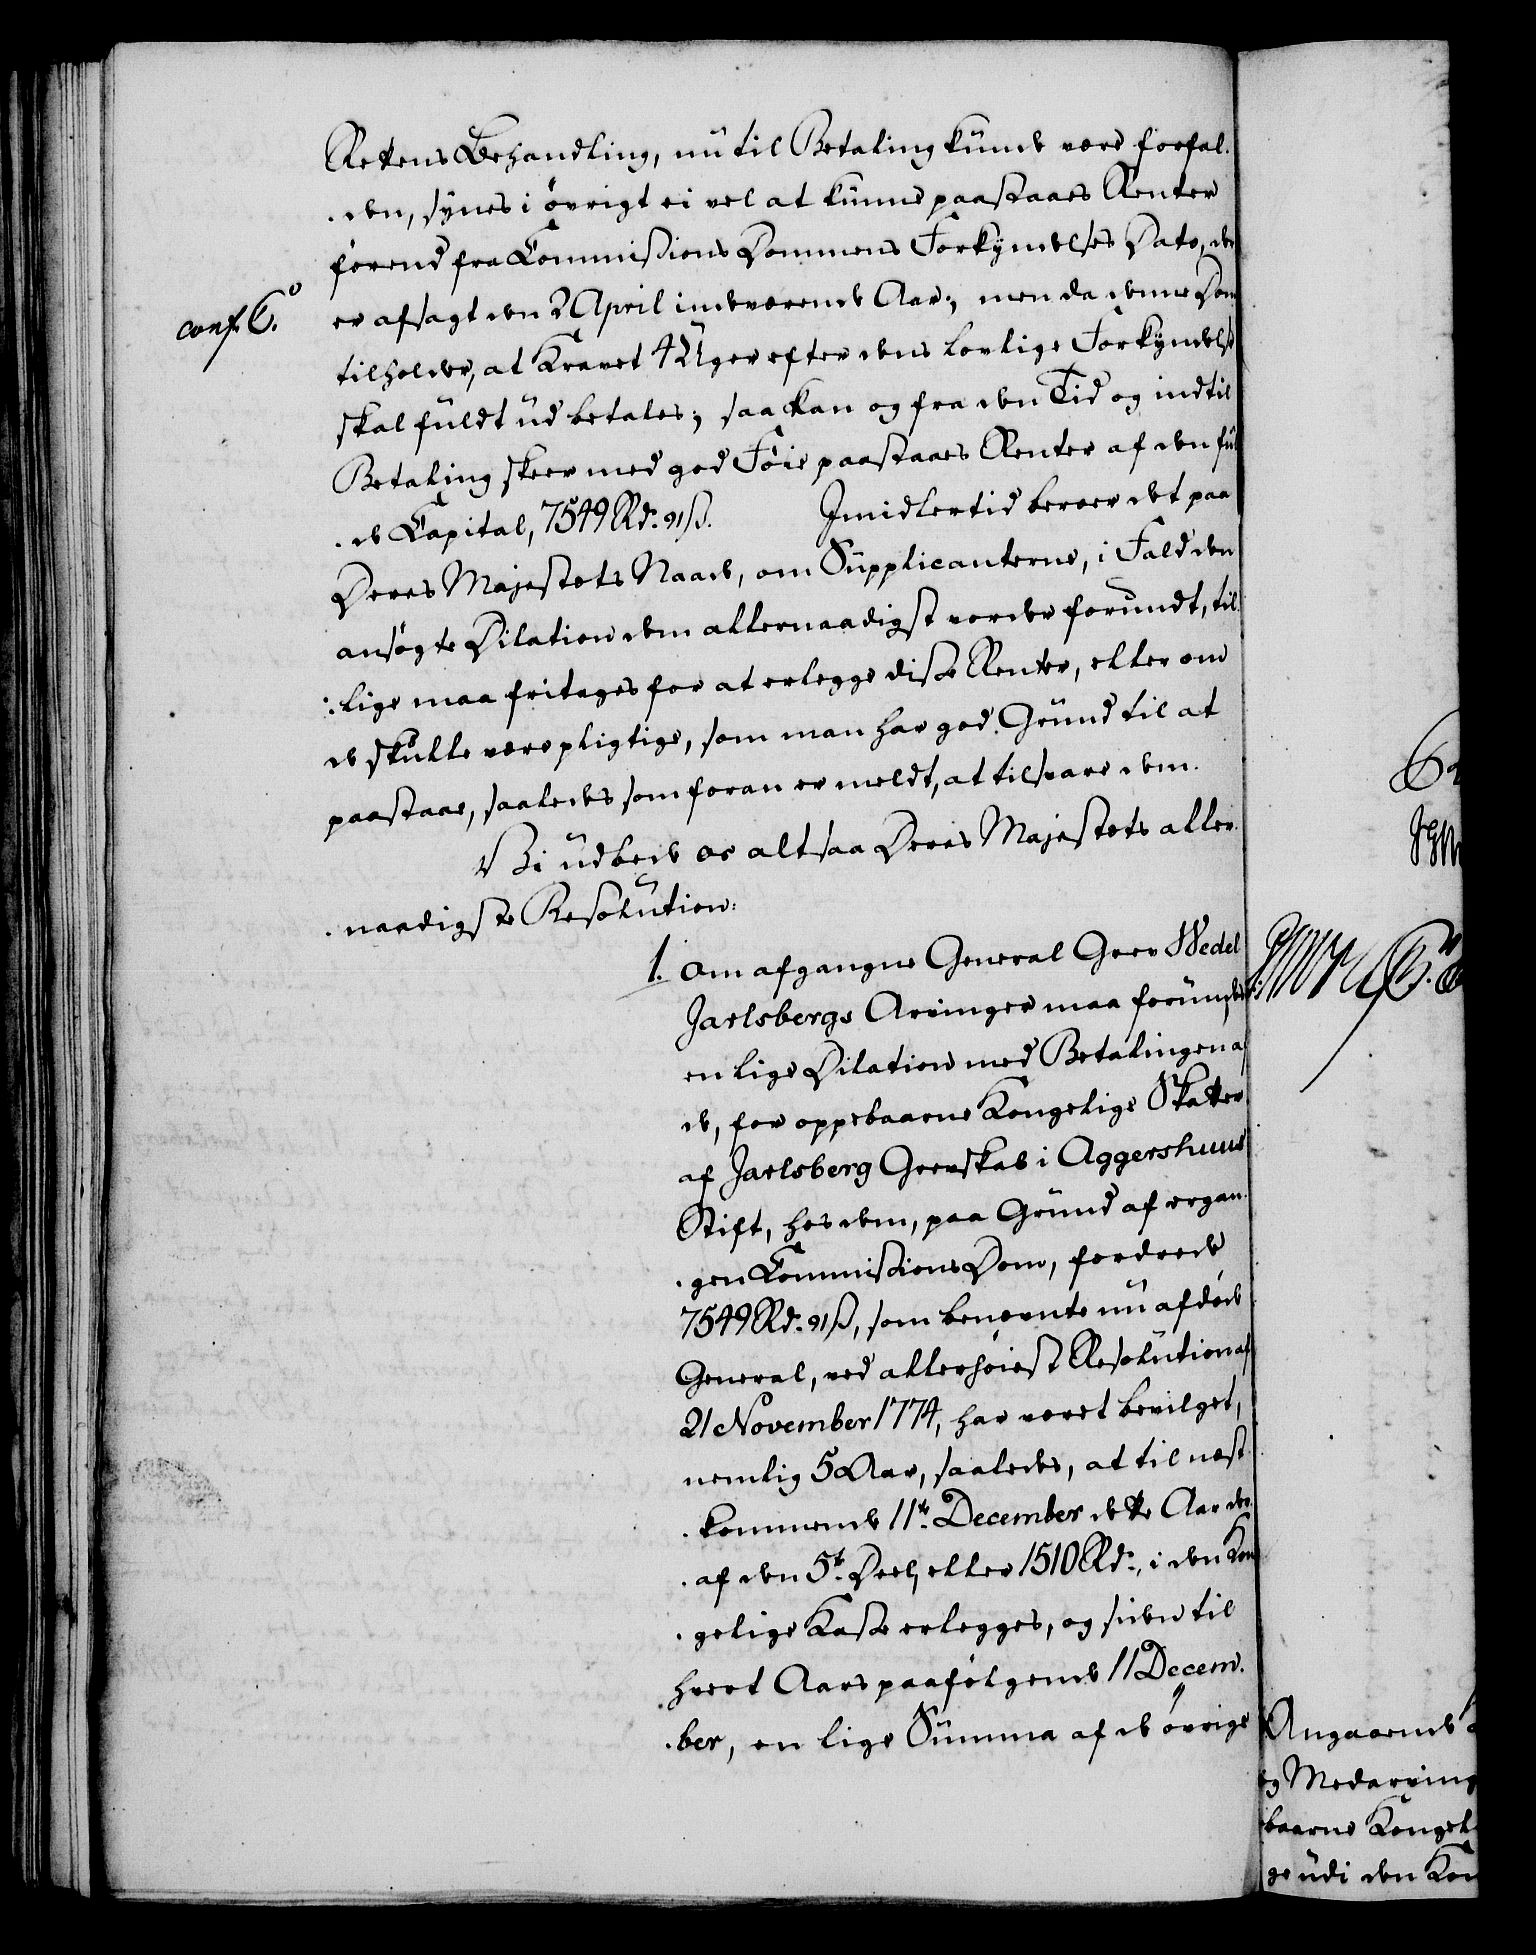 Rettens Behandling, nu til Betaling kunde være forfal-
-den, synes i øvrigt ei vel at kunne paastaaes Renter
førend fra Commissions Dommens Forkyndelses Dato, der
conf. 6.° er afsagt den 2 April indeværende Aar; men da denne Dom
tilholder, at Kravet 4 Uger efter dens lovlige Forkyndelse
skal fuldt ud betales; saa kan og fra den Tid og indtil
Betaling skeer med god Føie paastaaes Renter af den ful
-de Capital, 7549 Rd. 91 ß. Imidlertid beroer det paa
Deres Majestets Naade, om Supplicanterne, i Fald den
ansøgte Dilation dem allernaadigst vorder forundt, til
-lige maa fritages for at erlegge disse Renter, eller om
de skulle være pligtige, som man har god Grund til at
paastaae, saaledes som foran er meldt, at tilsvare dem.
Vi udbede os altsaa Deres Majestets aller-
-naadigste Resolution:
1. Om afgangne General Grev Wedel
Jarlsbergs Arvinger maa forundes
en lige Dilation med Betalingen af
de, for oppebaarne Kongelige Skatter
af Jarlsberg Grevskab i Aggershuus
Stift, hos dem, paa Grund af ergan-
-gen Commissions Dom, fordrede
7549 Rd. 91 ß, som benevnte nu afdøde
General, ved allerhøiest Resolution af
21 November 1774, har været bevilget,
nemlig 5 Aar, saaledes, at til næst-
-kommende 11te December dette Aar der-
-af den 5te Deel, eller 1510 Rd., i den Kon
-gelige Kasse erlegges, og siden til
hvert Aars paafølgende 11 Decem-
-ber, en lige Summa af de øvrige
Angaaende
og Medarving
baarne Kongel
ge udi den Kon